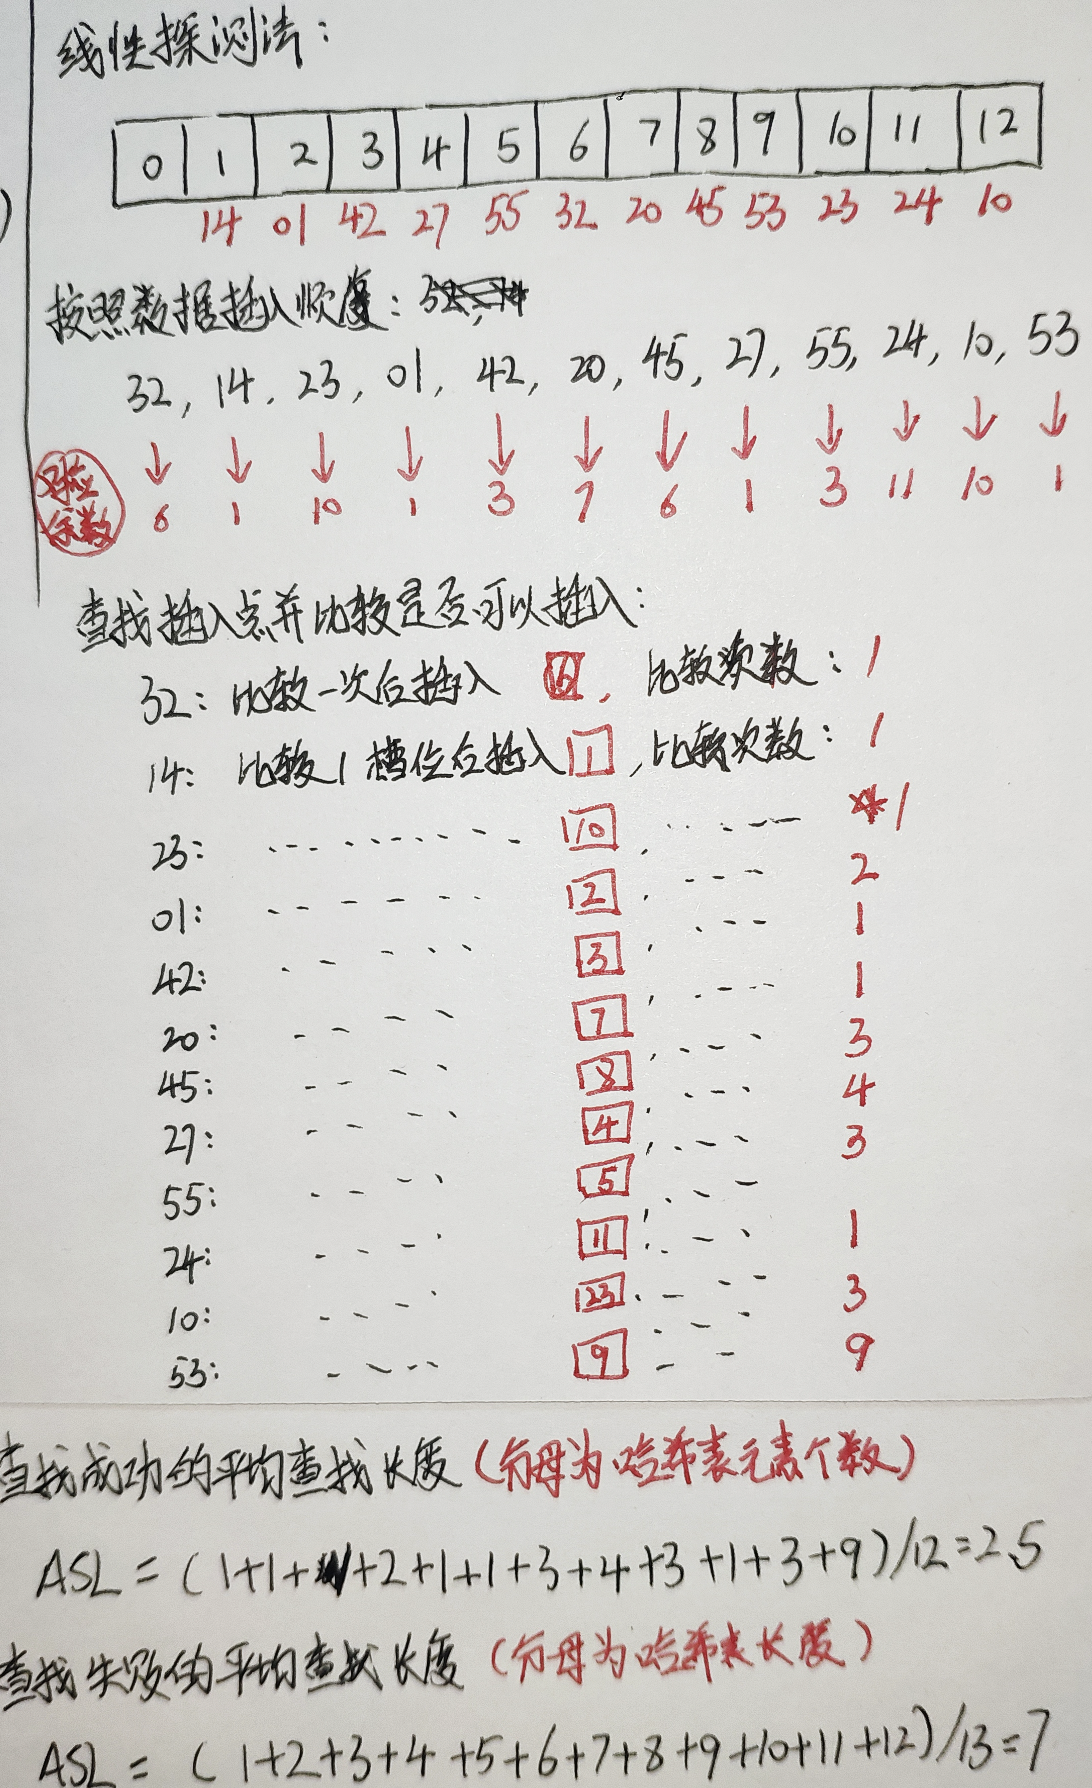 线性探测法：
0 1 2 3 4 5 6 7 8 9 10 11 12
14 01 42 27 55 32 20 45 53 23 24 10
按照数据插入顺序：
32, 14, 23, 01, 42, 20, 45, 27, 55, 24, 10, 53
对应余数 6 1 10 1 3 7 6 1 3 11 10 1
查找插入点并比较是否可以插入：
32: 比较一次后插入 6, 比较次数: 1
14: 比较1槽位后插入 1, 比较次数: 1
23: 10 1
01: 2 2
42: 3 1
20: 7 1
45: 8 3
27: 4 4
55: 5 3
24: 11 1
10: 3
53: 9 9
查找成功的平均查找长度(分母为哈希表元素个数)
ASL = (1+1+1+2+1+1+3+4+3+1+3+9)/12=2.5
查找失败的平均查找长度(分母为哈希表长度)
ASL = (1+2+3+4+5+6+7+8+9+10+11+12)/13=7